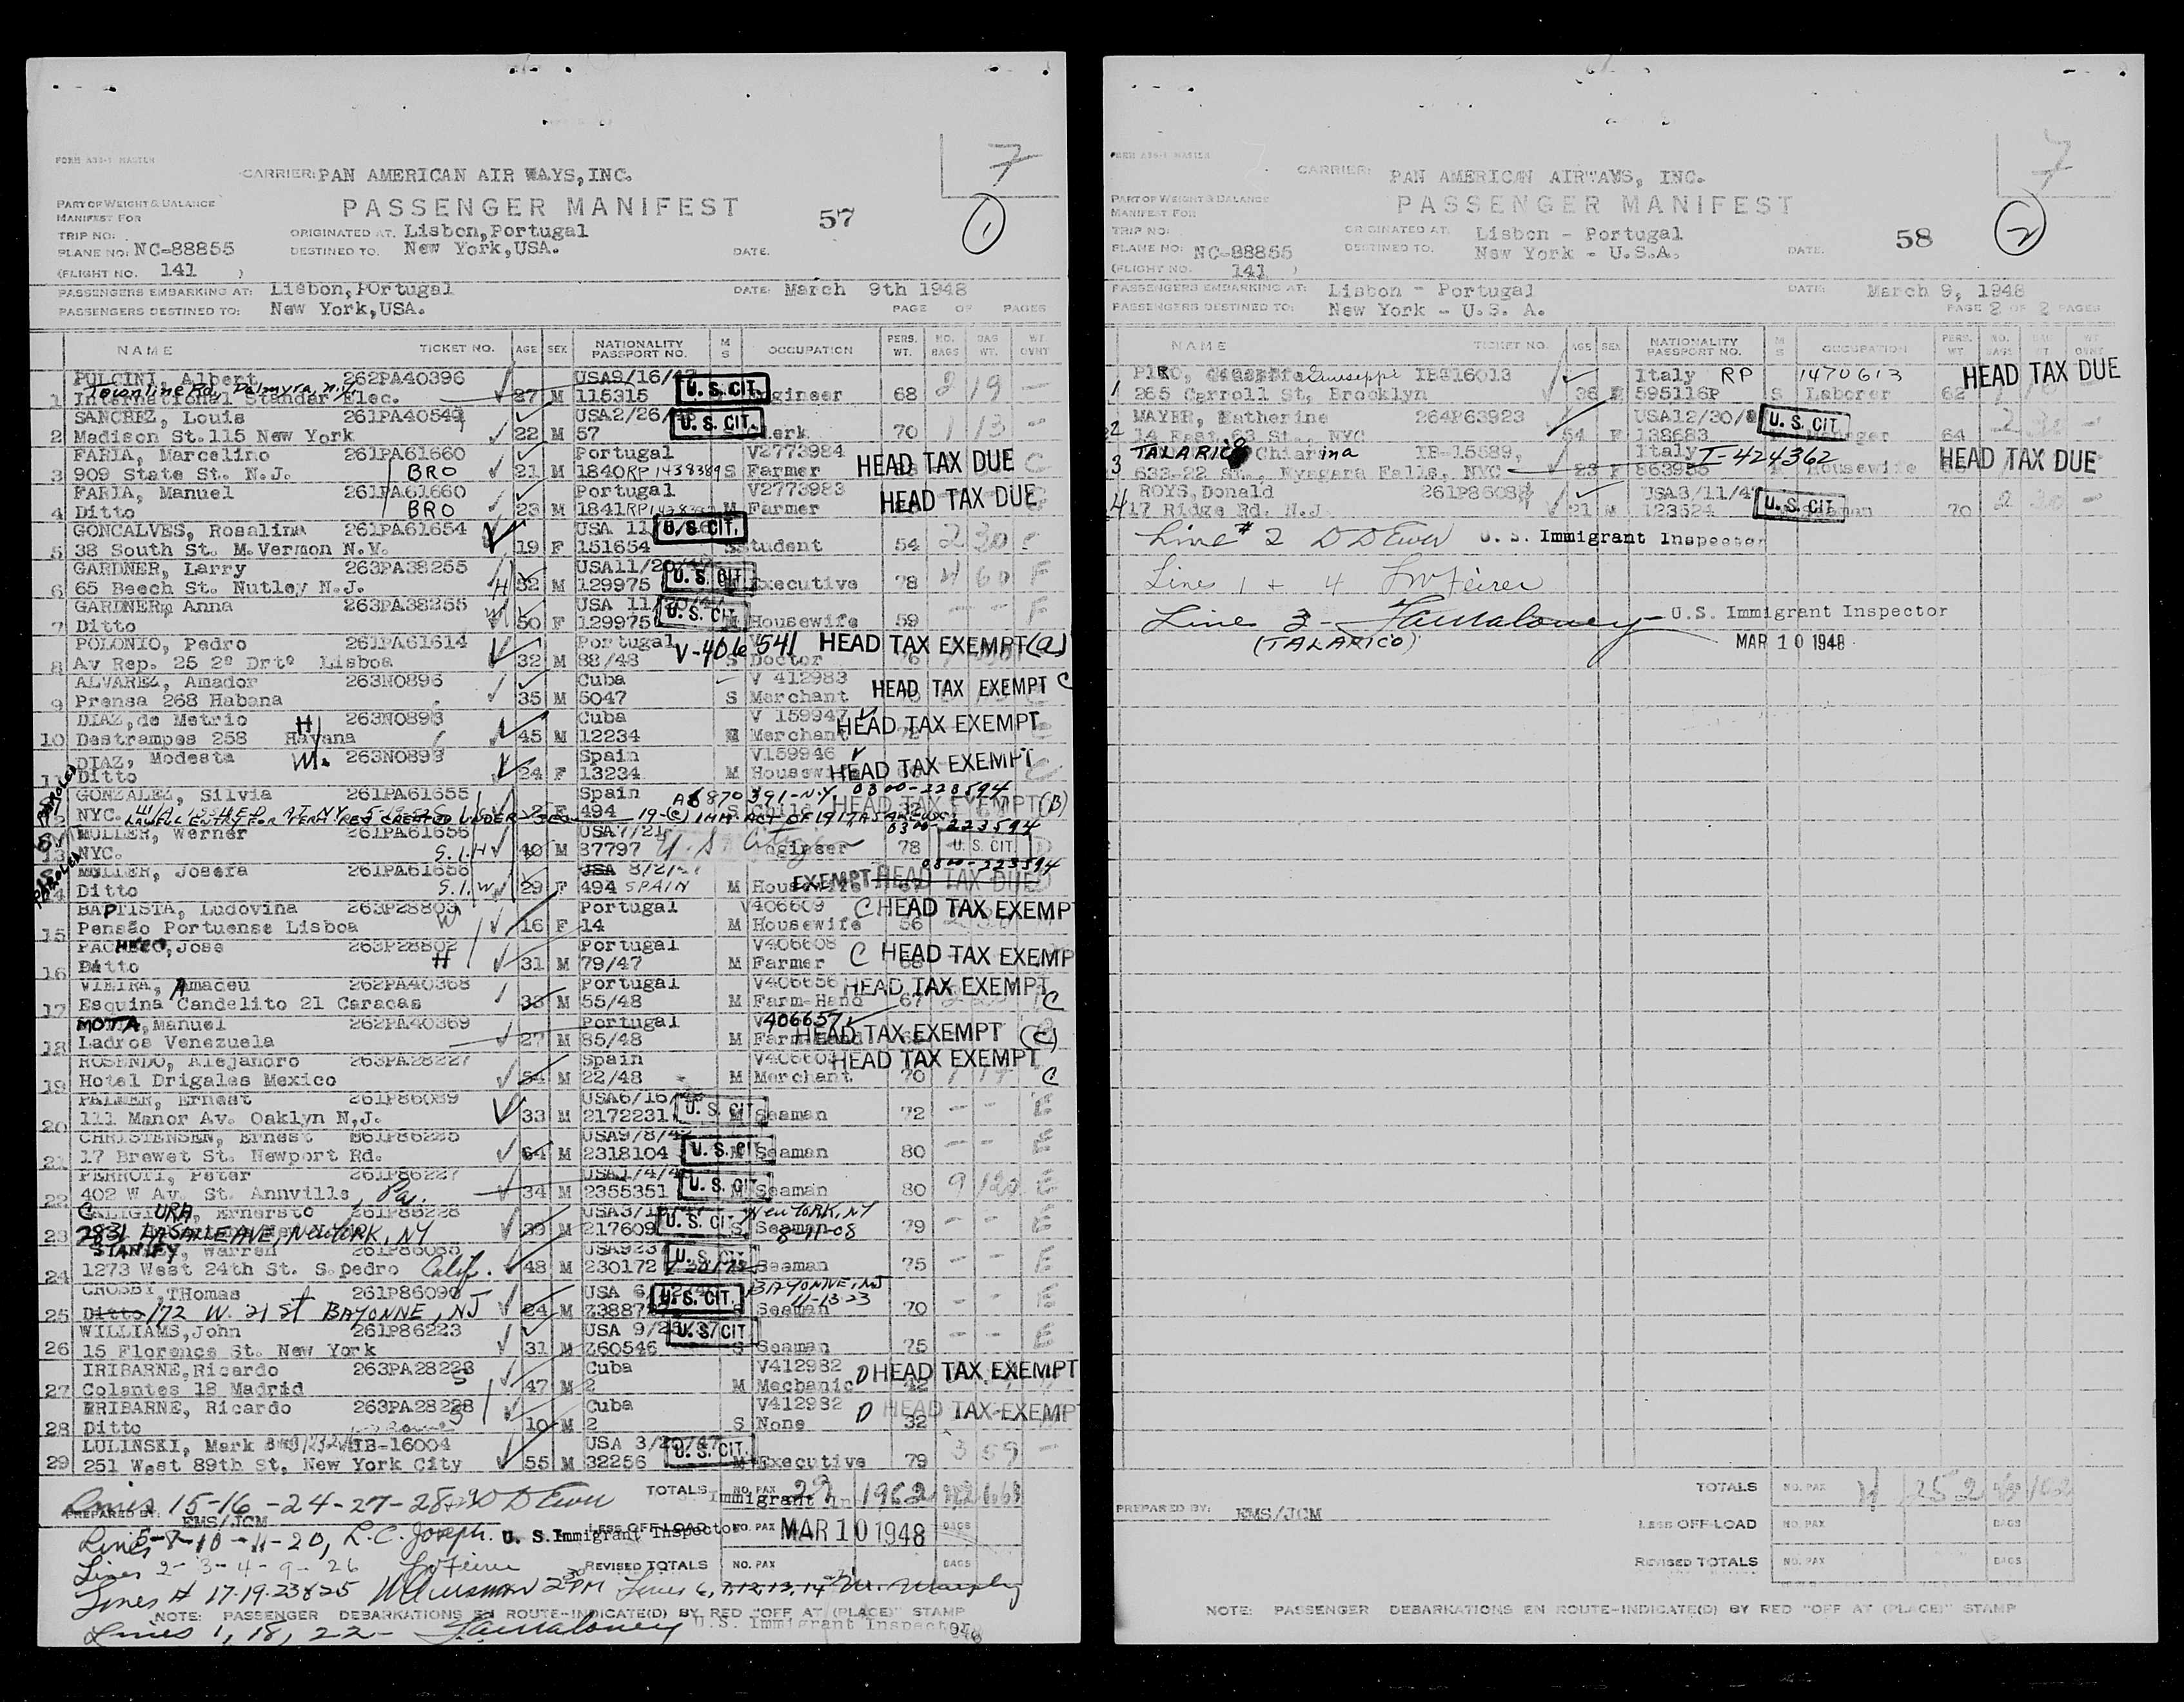 7
FORM A30-1 MASTER
CARRIER: PAN AMERICAN AIR WAYS, INC.
PART OF WEIGHT & BALANCE
MANIFEST FOR
PASSENGER MANIFEST 57 1
TRIP NO:
ORIGINATED AT. Lisbon, Portugal
PLANE NO: NC-88855 DESTINED TO. New York, USA. DATE.
(FLIGHT NO. 141 )
PASSENGERS EMBARKING AT: Lisbon, POrtugal DATE: March 9th 1948
PASSENGERS DESTINED TO: New York, USA. PAGE OF PAGES
NAME TICKET NO. AGE SEX NATIONALITY PASSPORT NO. M S OCCUPATION PERS. WT. NO. BAGS BAG WT. WT OVHT
PULCINI, Albert 262PA40396 USA9/16/47 U. S. CIT.
Townline Rd. Palmyra, N.Y.
1 International Standar Elec. 37 M 115315 68 2 19 -
SANCHEZ, Louis 261PA40549 USA2/26/ U. S. CIT.
2 Madison St.115 New York 22 M 57 70 1 13 -
FARIA, Marcelino 261PA61660 Portugal V2773984
3 909 State St. N.J. BRO 21 M 1840 RP 1438389 S Farmer HEAD TAX DUE C
FARIA, Manuel 261PA61660 Portugal V2773983
4 Ditto BRO 23 M 1841 RP M Farmer HEAD TAX DUE
GONCALVES, Rosalina 261PA61654 USA 11 U. S. CIT.
5 38 South St. M.Vermon N.Y. 19 F 151654 Student 54 2 30
GARDNER, Larry 263PA38255 USA11/20/ U. S. CIT.
6 65 Beech St. Nutley N.J. H 52 M 129975 Executive 78 4 60 F
GARDNER, Anna 263PA38255 USA 11/ U. S. CIT.
7 Ditto W 50 F 129975 Housewife 59 - - F
POLONIO, Pedro 261PA61614 Portugal V-406541 HEAD TAX EXEMPT (a)
8 Av Rep. 25 2º Drtº Lisboa 32 M 88/48 S Doctor 76
ALVAREZ, Amador 263N0896 Cuba V 412983
9 Prensa 268 Habana 35 M 5047 S Merchant HEAD TAX EXEMPT C
DIAZ, de Metrio H 263N0893 Cuba V 159947
10 Destrampes 258 Havana 45 M 12234 Merchant HEAD TAX EXEMPT
DIAZ, Modesta W. 263N0893 Spain V159946
11 Ditto 24 F 13234 M Housewife HEAD TAX EXEMPT
GONZALEZ, Silvia 261PA61655 Spain 0300-223594
PAROLED
12 NYC. 2 F 494 S Child 32 HEAD TAX EXEMPT (B)
MULLER, Werner 261PA61656 USA7/21 0300-223594
13 NYC. S.I. H 40 M 37797 U.S. Citizen Engineer 78 U. S. CIT.
MULLER, Josefa 261PA61656 USA 8/2/ 0300-223594
14 Ditto S.I. W 29 F 494 SPAIN M Housewife EXEMPT HEAD TAX DUE
PAROLED
BAPTISTA, Ludovina 263P28803 Portugal V406609
15 Pensão Portuense Lisboa W 16 F 14 M Housewife 56 C HEAD TAX EXEMP
PACHECO, Jose 263P28802 Portugal V406608
16 Ditto H 31 M 79/47 M Farmer 68 C HEAD TAX EXEMP
VIEIRA, Amadeu 262PA40368 Portugal V406656
17 Esquina Candelito 21 Caracas 33 M 55/48 M Farm-Hand 67 HEAD TAX EXEMPT C
MOTA, Manuel 262PA40369 Portugal V406657
18 Ladros Venezuela 27 M 85/48 M Farm Hand HEAD TAX EXEMPT (C)
ROSENDO, Alejandro 263PA28227 Spain HEAD TAX EXEMPT
19 Hotel Drigales Mexico 54 M 22/48 M Merchant 70 1 17 C
PALMER, Ernest 261P86089 USA6/16/ U. S. CIT.
20 111 Manor Av. Oaklyn N,J. 33 M 2172231 Seaman 72 - - E
CHRISTENSEN, Ernest 261P86225 USA9/8/4 U. S. CIT.
21 17 Brewet St. Newport Rd. 64 M 2318104 Seaman 80 - - E
PERROTI, Peter 261P86227 USA1/4/4 U. S. CIT.
22 402 W Av. St. Annville, Pa. 34 M 2355351 Seaman 80 9 120 E
CALIGIURA, Ernersto 261P86228 USA3/1 U. S. CIT. New YORK, NY
23 2831 LASALLE AVE, NEW YORK, NY 39 M 217609 S Seaman 8-11-08 79 - - E
STANLEY, Warren 261P86085 USA923 U. S. CIT.
24 1273 West 24th St. S.pedro Calif. 48 M 230172 Seaman 75 - - E
CROSBY, THomas 261P86090 USA 6/ U. S. CIT. BAYONNE, NJ
25 Ditto 172 W. 21 St BAYONNE, NJ 24 M Seaman 11-13-23 70 - - E
WILLIAMS, John 261P86223 USA 9/2 U. S. CIT.
26 15 Florence St. New York 31 M Z60546 S Seaman 75 - - E
IRIBARNE, Ricardo 263PA28228 Cuba V412982
27 Colantes 18 Madrid 47 M 2 M Mechanic 42 D HEAD TAX EXEMPT
ERIBARNE, Ricardo 263PA28228 Cuba V412982
28 Ditto 10 M 2 S None 32 D HEAD TAX EXEMP
LULINSKI, Mark IB-16004 USA 3/20/47 U. S. CIT.
29 251 West 89th St, New York City 55 M 32256 Executive 79 3 59 -
Lines 15-16-24-27-28 D D Ewen TOTALS NO. PAX 29 1962
PREPARED BY: EMS/JCM
LESS OFF-LOAD NO. PAX MAR 10 1948 BAGS
L.C. Joseph. U. S. Immigrant Inspector
Lines 2-3-4-9-26 REVISED TOTALS NO. PAX BAGS
Lines # 17.19.23&25
NOTE: PASSENGER DEBARKATIONS EN ROUTE-INDICATE(D) BY RED "OFF AT (PLACE)" STAMP
Lines 1, 18, 22- U.S. Immigrant Inspector
7
FORM A30-1 MASTER
CARRIER: PAN AMERICAN AIRWAYS, INC.
PART OF WEIGHT & BALANCE
MANIFEST FOR
PASSENGER MANIFEST
TRIP NO: ORIGINATED AT. Lisbon - Portugal 58 2
PLANE NO: NC-88855 DESTINED TO: New York - U.S.A. DATE.
(FLIGHT NO. 141 )
PASSENGERS EMBARKING AT: Lisbon - Portugal DATE: March 9, 1948
PASSENGERS DESTINED TO: New York - U.S. A. PAGE 2 OF 2 PAGES
NAME TICKET NO. AGE SEX NATIONALITY PASSPORT NO. M S OCCUPATION PERS. WT. NO. BAGS BAG WT. WT OVHT
PIRO, Giuseppi IB-16013 Italy RP 1470613 HEAD TAX DUE
1 265 Carroll St, Brooklyn 36 595116P S Laborer 62
MAYER, Katherine 264P63923 USA12/30/ U. S. CIT.
2 14 East 23 St., NYC 54 F 138683 Manager 64 2
TALARICO Chiarina IB-15589, Italy I-424362
3 633-22 St., Nyagara Falls, NYC 23 F Housewife HEAD TAX DUE
ROYS, Donald USA3/11/4 U. S. CIT.
4 17 Ridge Rd. N.J. 21 M 123524 70 2 30 -
Line # 2 D D Ewen U. S. Immigrant Inspector
Lines 1 + 4
Line 3- U.S. Immigrant Inspector
(TALARICO) MAR 10 1948
TOTALS NO. PAX 4 252
PREPARED BY: EMS/JCM
LESS OFF-LOAD NO. PAX BAGS
REVISED TOTALS NO. PAX BAGS
NOTE: PASSENGER DEBARKATIONS EN ROUTE-INDICATE(D) BY RED "OFF AT (PLACE)" STAMP